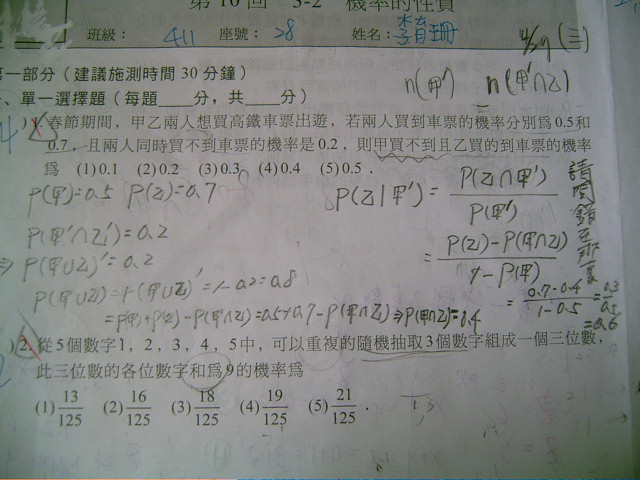 第10回 3-2 機率的性質
班級： 411 座號： 28 姓名：李育珊
一部分（建議施測時間 30 分鐘）
、單一選擇題（每題____分，共____分）
n(甲') n(甲'∩乙)
)1. 春節期間，甲乙兩人想買高鐵車票出遊，若兩人買到車票的機率分別為 0.5 和
0.7，且兩人同時買不到車票的機率是 0.2，則甲買不到且乙買的到車票的機率
為 (1) 0.1 (2) 0.2 (3) 0.3 (4) 0.4 (5) 0.5．
P(甲)=0.5 P(乙)=0.7
P(甲'∩乙')=0.2
⇒ P(甲∪乙)'=0.2
P(甲∪乙)=1-(甲∪乙)'=1-0.2=0.8
=P(甲)+P(乙)-P(甲∩乙)=0.5+0.7-P(甲∩乙)⇒P(甲∩乙)=0.4
P(乙|甲')= P(乙∩甲') / P(甲')
= P(乙)-P(甲∩乙) / 1-P(甲)
= 0.7-0.4 / 1-0.5 = 0.3 / 0.5
=0.6
請問錯在那裏
)2. 從 5 個數字 1，2，3，4，5 中，可以重複的隨機抽取 3 個數字組成一個三位數，
此三位數的各位數字和為 9 的機率為
(1) 13/125 (2) 16/125 (3) 18/125 (4) 19/125 (5) 21/125．